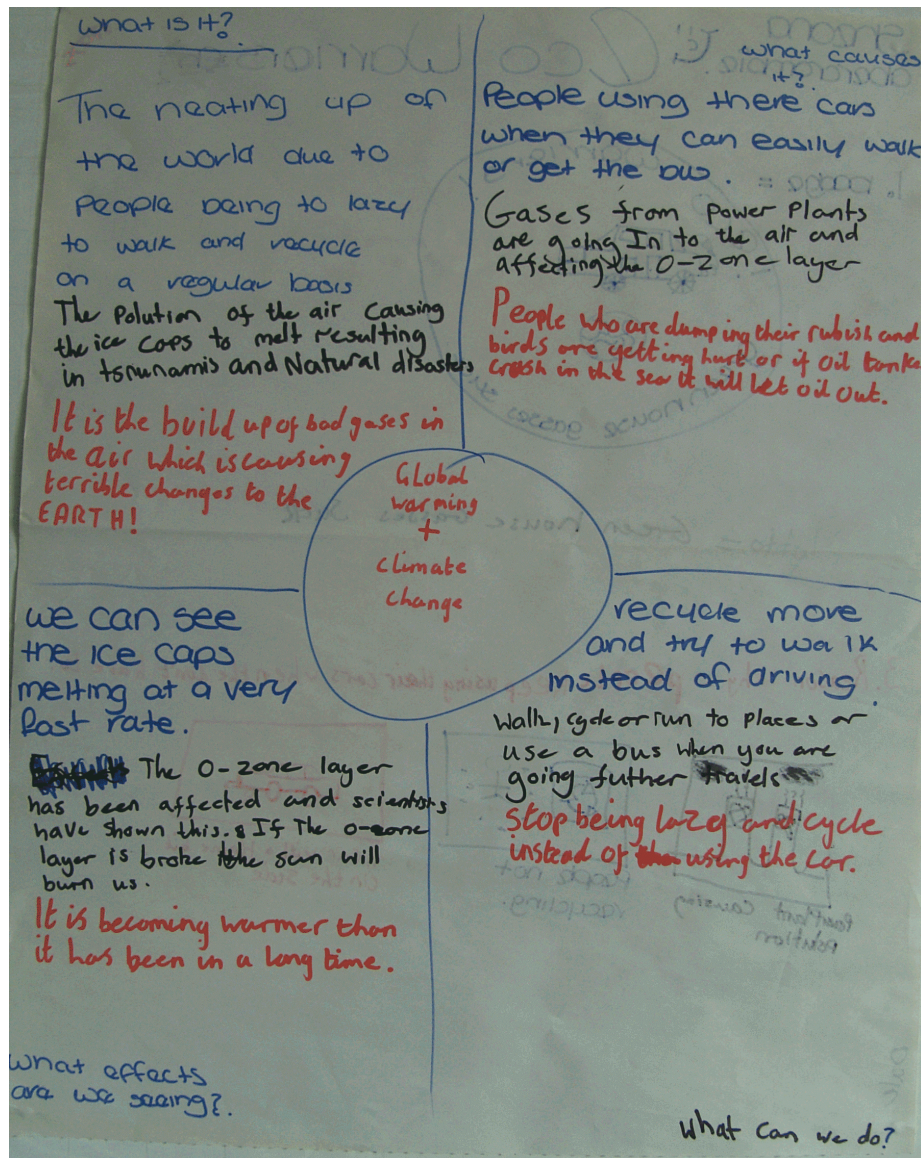 What is it?
The heating up of
the world due to
People being to lazy
to walk and recycle
on a regular basis
The Polution of the air causing
the ice caps to melt resulting
in tsnunamis and Natural disasters
It is the build up of bad gases in
the air which is causing
terrible changes to the
EARTH!
what causes
it?
People using there cars
when they can easily walk
or get the bus.
Gases from Power Plants
are going In to the air and
affecting the O-Zone layer
People who are dumping their rubish and
birds are getting hurt or if oil tanks
crash in the sea it will let oil out.
Global
warming
+
climate
change
we can see
the ice caps
melting at a very
fast rate.
The O-zone layer
has been affected and scientists
have shown this. If The o-zone
layer is broke the sun will
burn us.
It is becoming warmer than
it has been in a long time.
What effects
are we seeing?
recycle more
and try to walk
instead of driving
Walk, cycle or run to places or
use a bus when you are
going futher travels
Stop being lazy and cycle
instead of using the car.
What can we do?